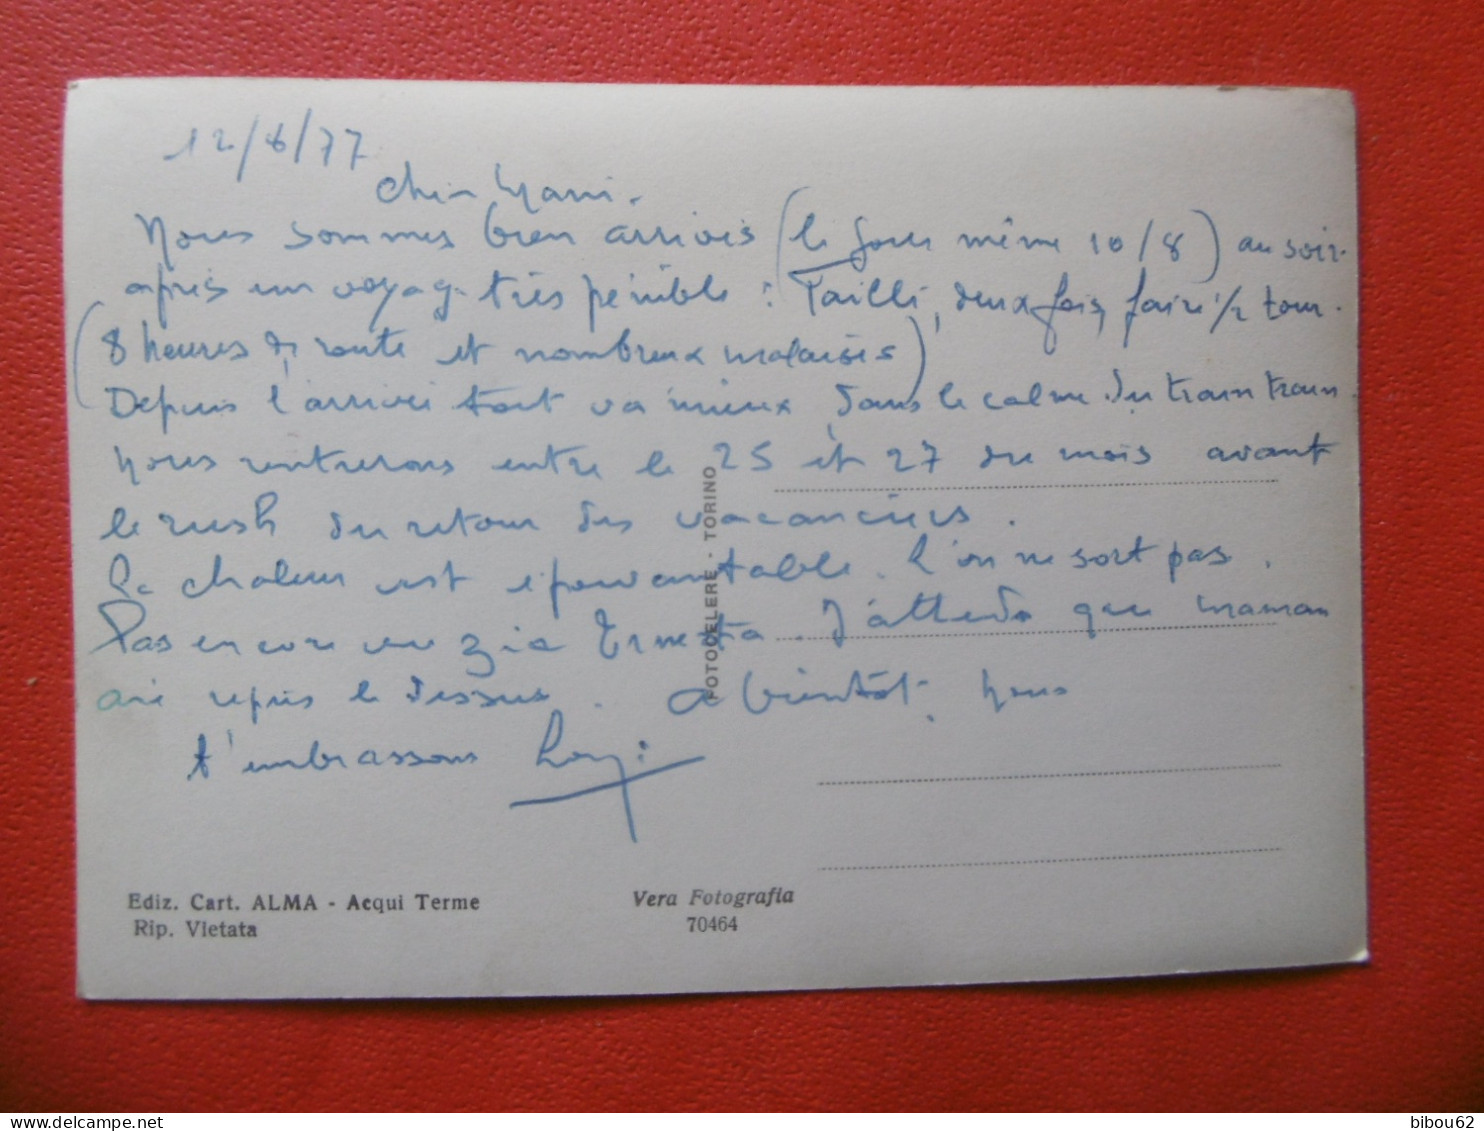 12/8/77
Nous sommes bien arrivés (le jour même 10/8) au soir.
après un voyage très pénible : Failli, deux fois, faire 1/2 tour.
(8 heures de route et nombreux malaises)
Depuis l'arrivée tout va mieux, dans le calme du train train
Nous rentrerons entre le 25 et 27 du mois avant
le rush du retour des vacanciers.
La chaleur est épouvantable. L'on ne sort pas.
Pas encore vu zia Ernesta. J'attends que maman
aie repris le dessus. A bientôt. Nous
t'embrassons
FOTOCELERE - TORINO
Ediz. Cart. ALMA - Acqui Terme
Rip. Vietata
Vera Fotografia
70464
bibou62